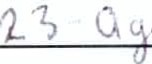 23 ag